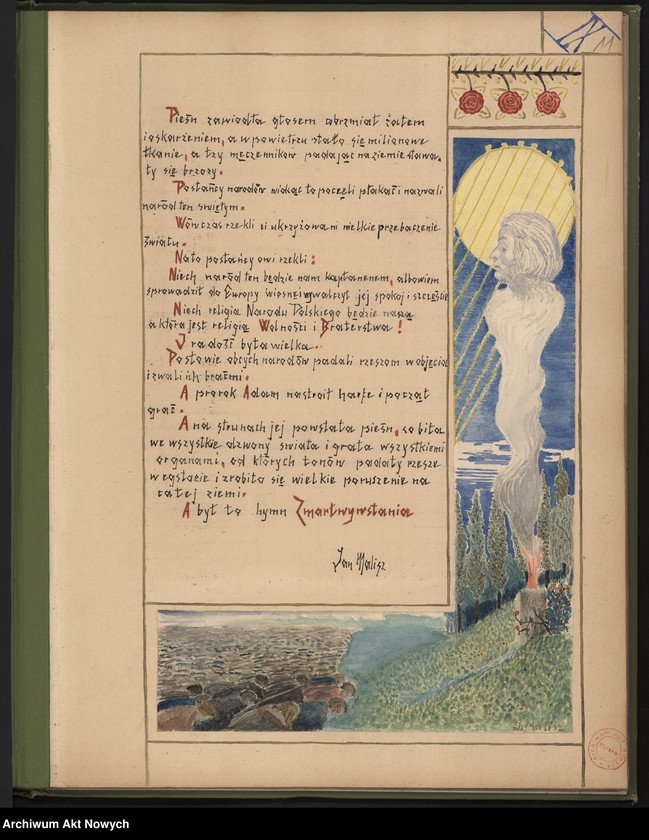 IX 11
Pieśń zawiodła głosem
i oskarżeniem, a w powietrzu stało się milionowe
łkanie, a łzy męczenników padając na ziemię stawa-
ły się brzozy.
Posłańcy narodów widząc to poczęli płakać i nazwali
naród ten świętym.
Wówczas rzekli ci ukrzyżowani wielkie przebaczenie
światu.
Na to posłańcy owi rzekli:
Niech naród ten będzie nam kapłanenem, albowiem
sprowadził do Europy wiosnę i wywalczył jej spokój i szczęście
Niech religia Narodu Polskiego będzie naszą
a która jest religią Wolności i Braterstwa!
I radość była wielka.
Posłowie obcych narodów padali rzeszom w objęcia
i zwali ich braćmi.
A prorok Adam nastroił harfę i począł
grać.
A na strunach jej powstała pieśń, co biła
we wszystkie dzwony świata i grała wszystkiemi
organami, od których tonów padały rzesze
w egstazie i zrobiło się wielkie poruszenie na
całej ziemi.
A był to hymn Zmartwywstania
Jan Malisz
Archiwum Akt Nowych